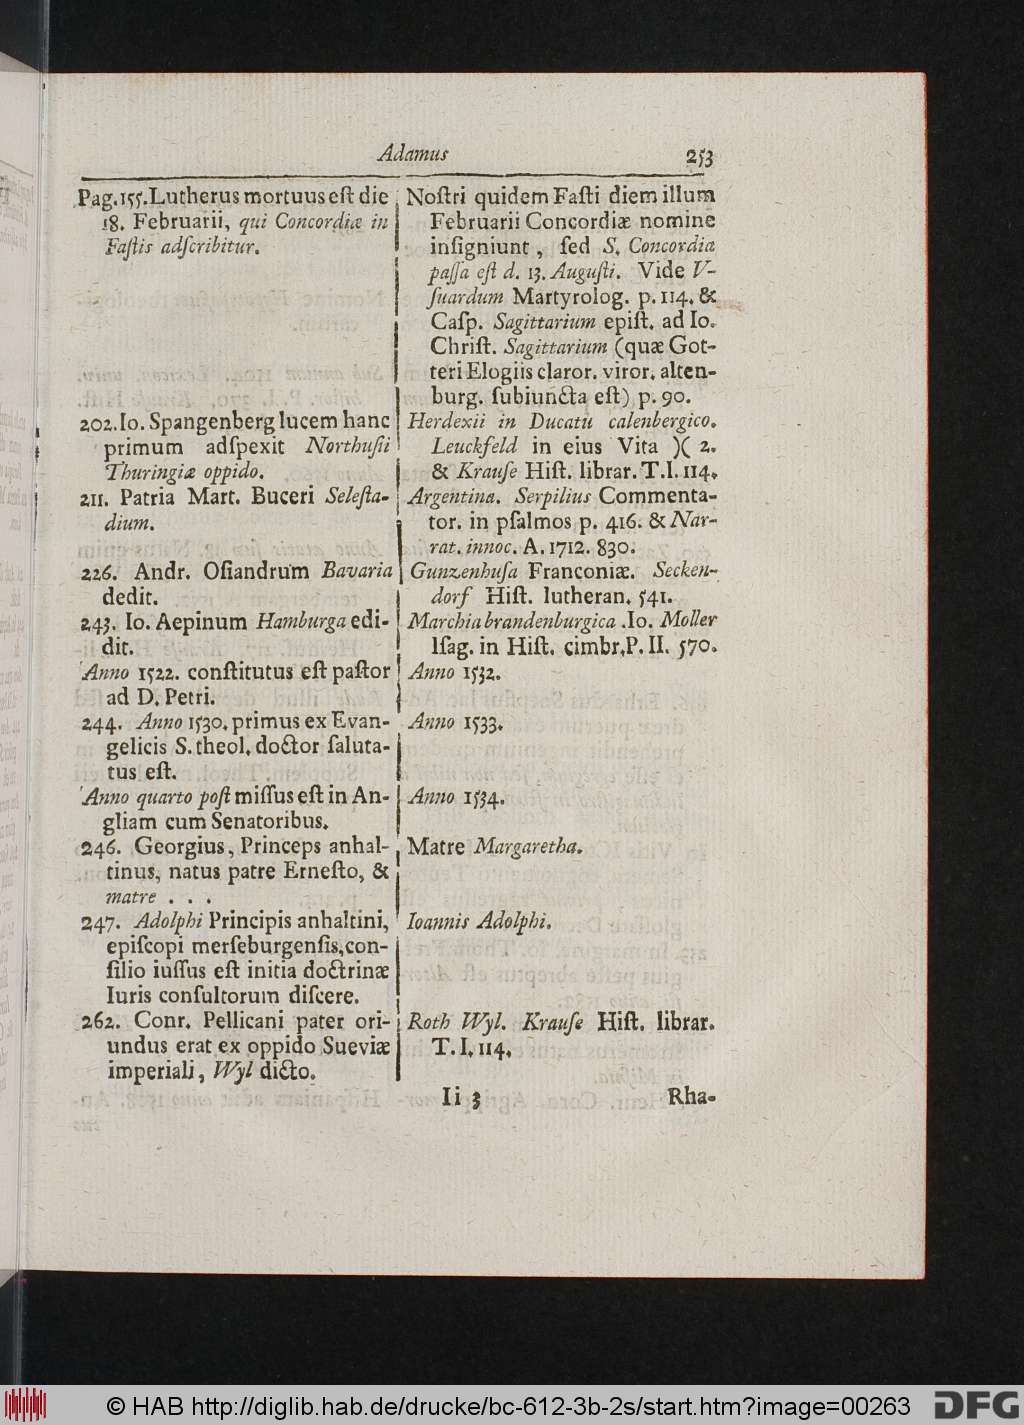 Adamus 253
Pag.155. Lutherus mortuus eſt die
18. Februarii, qui Concordiæ in
Faſtis adſcribitur.
202. Io. Spangenberg lucem hanc
primum adſpexit Northuſii
Thuringiæ oppido.
211. Patria Mart. Buceri Seleſta-
dium.
226. Andr. Oſiandrum Bavaria
dedit.
243. Io. Aepinum Hamburga edi-
dit.
Anno 1522. conſtitutus eſt paſtor
ad D. Petri.
244. Anno 1530. primus ex Evan-
gelicis S. theol. doctor ſaluta-
tus eſt.
Anno quarto poſt miſſus eſt in An-
gliam cum Senatoribus.
246. Georgius, Princeps anhal-
tinus, natus patre Erneſto, &
matre . . .
247. Adolphi Principis anhaltini,
epiſcopi merſeburgenſis, con-
ſilio iuſſus eſt initia doctrinæ
Iuris conſultorum diſcere.
262. Conr. Pellicani pater ori-
undus erat ex oppido Sueviæ
imperiali, Wyl dicto.
Noſtri quidem Faſti diem illum
Februarii Concordiæ nomine
inſigniunt, ſed S. Concordia
paſſa eſt d. 13. Auguſti. Vide V-
ſuardum Martyrolog. p. 114. &
Caſp. Sagittarium epiſt. ad Io.
Chriſt. Sagittarium (quæ Got-
teri Elogiis claror. viror. alten-
burg. ſubiuncta eſt) p. 90.
Herdexii in Ducatu calenbergico.
Leuckfeld in eius Vita )( 2.
& Krauſe Hiſt. librar. T. I. 114.
Argentina. Serpilius Commenta-
tor. in pſalmos p. 416. & Nar-
rat. innoc. A. 1712. 830.
Gunzenhuſa Franconiæ. Secken-
dorf Hiſt. lutheran. 541.
Marchia brandenburgica. Io. Moller
Iſag. in Hiſt. cimbr. P. II. 570.
Anno 1532.
Anno 1533.
Anno 1534.
Matre Margaretha.
Ioannis Adolphi.
Roth Wyl. Krauſe Hiſt. librar.
T. I. 114.
Ii 3 Rha-
© HAB http://diglib.hab.de/drucke/bc-612-3b-2s/start.htm?image=00263
DFG